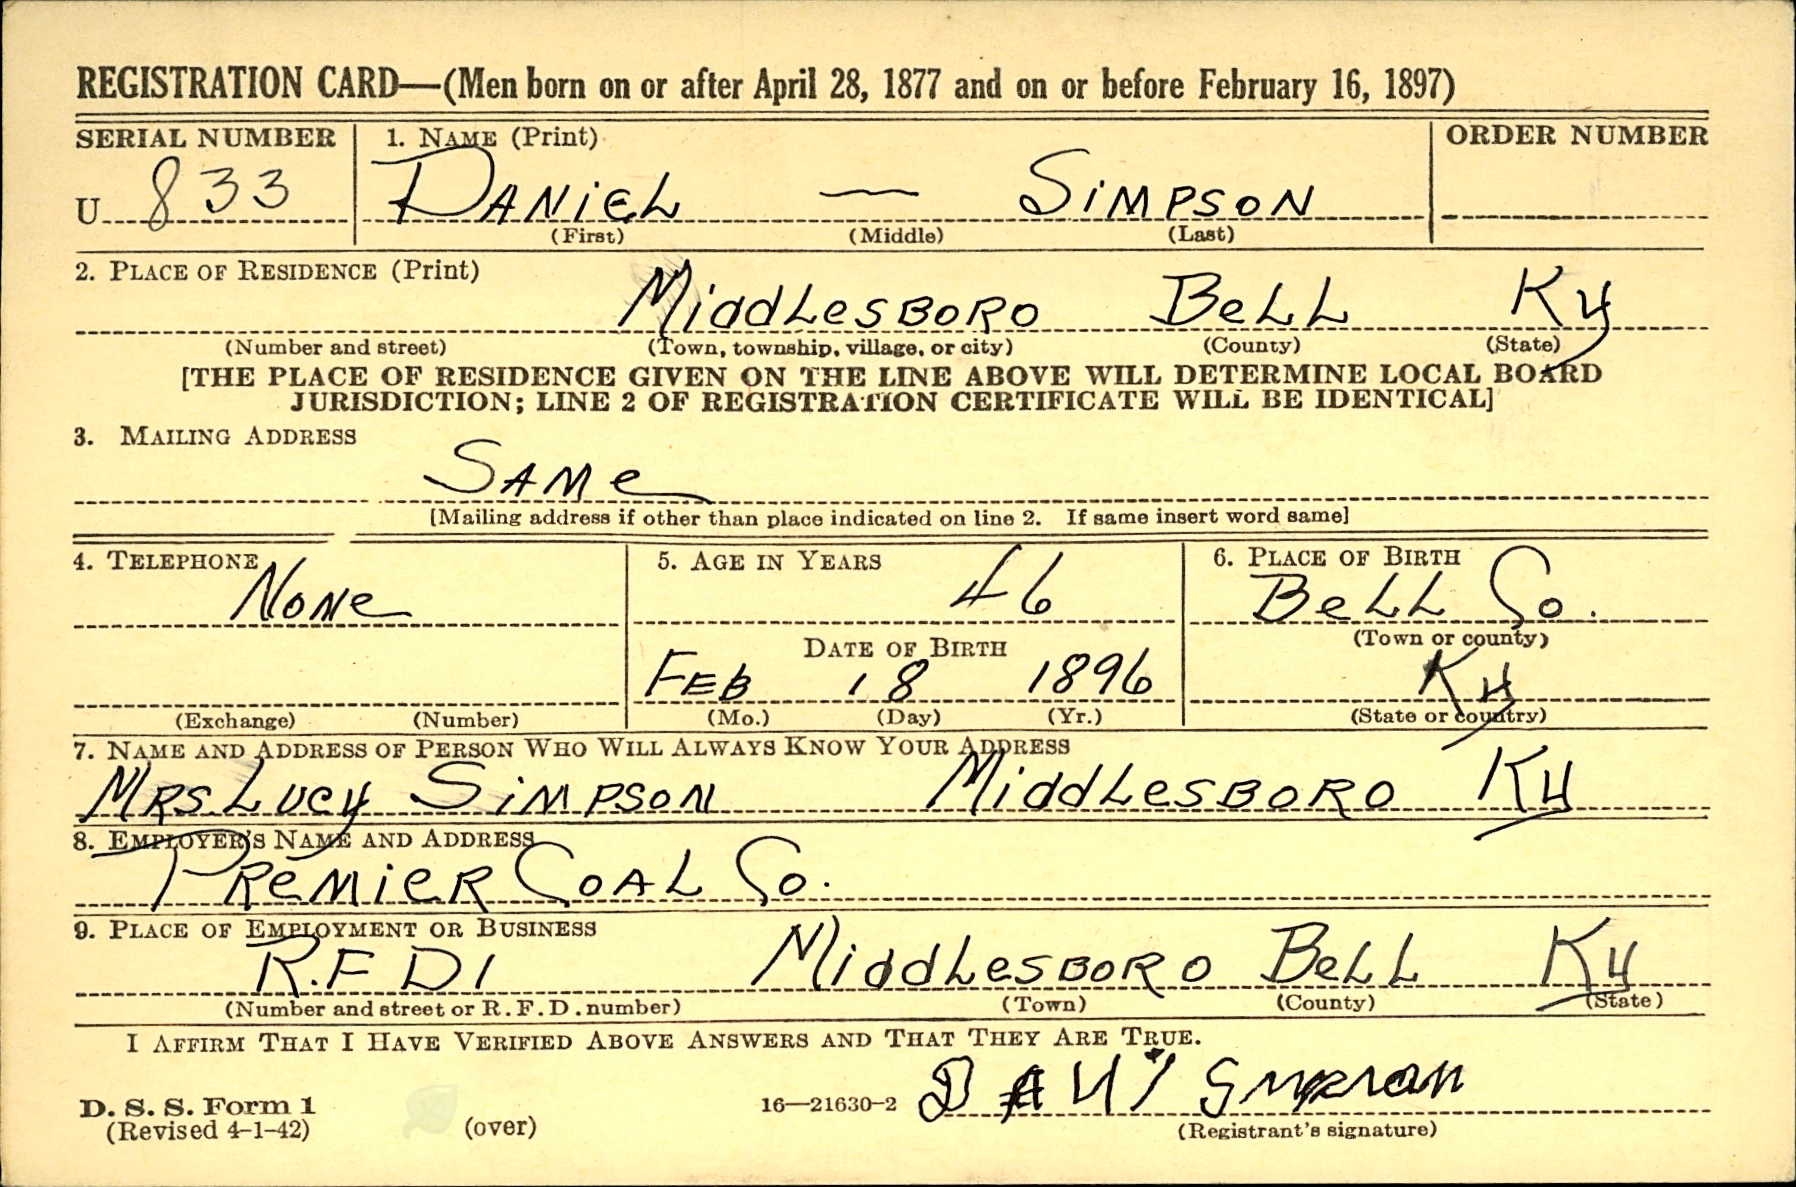 REGISTRATION CARD—(Men born on or after April 28, 1877 and on or before February 16, 1897)
SERIAL NUMBER 1. NAME (Print) ORDER NUMBER
U 833 DANiEL — SiMPSON
(First) (Middle) (Last)
2. PLACE OF RESIDENCE (Print)
MiddLesBORO BeLL Ky
(Number and street) (Town, township, village, or city) (County) (State)
[THE PLACE OF RESIDENCE GIVEN ON THE LINE ABOVE WILL DETERMINE LOCAL BOARD
JURISDICTION; LINE 2 OF REGISTRATION CERTIFICATE WILL BE IDENTICAL]
3. MAILING ADDRESS
SAMe
[Mailing address if other than place indicated on line 2. If same insert word same]
4. TELEPHONE 5. AGE IN YEARS 6. PLACE OF BIRTH
NoNe 46 BeLL Co.
DATE OF BIRTH (Town or county)
FEB 18 1896 Ky
(Exchange) (Number) (Mo.) (Day) (Yr.) (State or country)
7. NAME AND ADDRESS OF PERSON WHO WILL ALWAYS KNOW YOUR ADDRESS
MRS. Lucy SiMPSON MiddLesBORO Ky
8. EMPLOYER'S NAME AND ADDRESS
PReMieR COAL Co.
9. PLACE OF EMPLOYMENT OR BUSINESS
R.F D1 MiddLesBORO BeLL Ky
(Number and street or R. F. D. number) (Town) (County) (State)
I AFFIRM THAT I HAVE VERIFIED ABOVE ANSWERS AND THAT THEY ARE TRUE.
D. S. S. Form 1
(Revised 4-1-42) (over) 16—21630-2
(Registrant's signature)